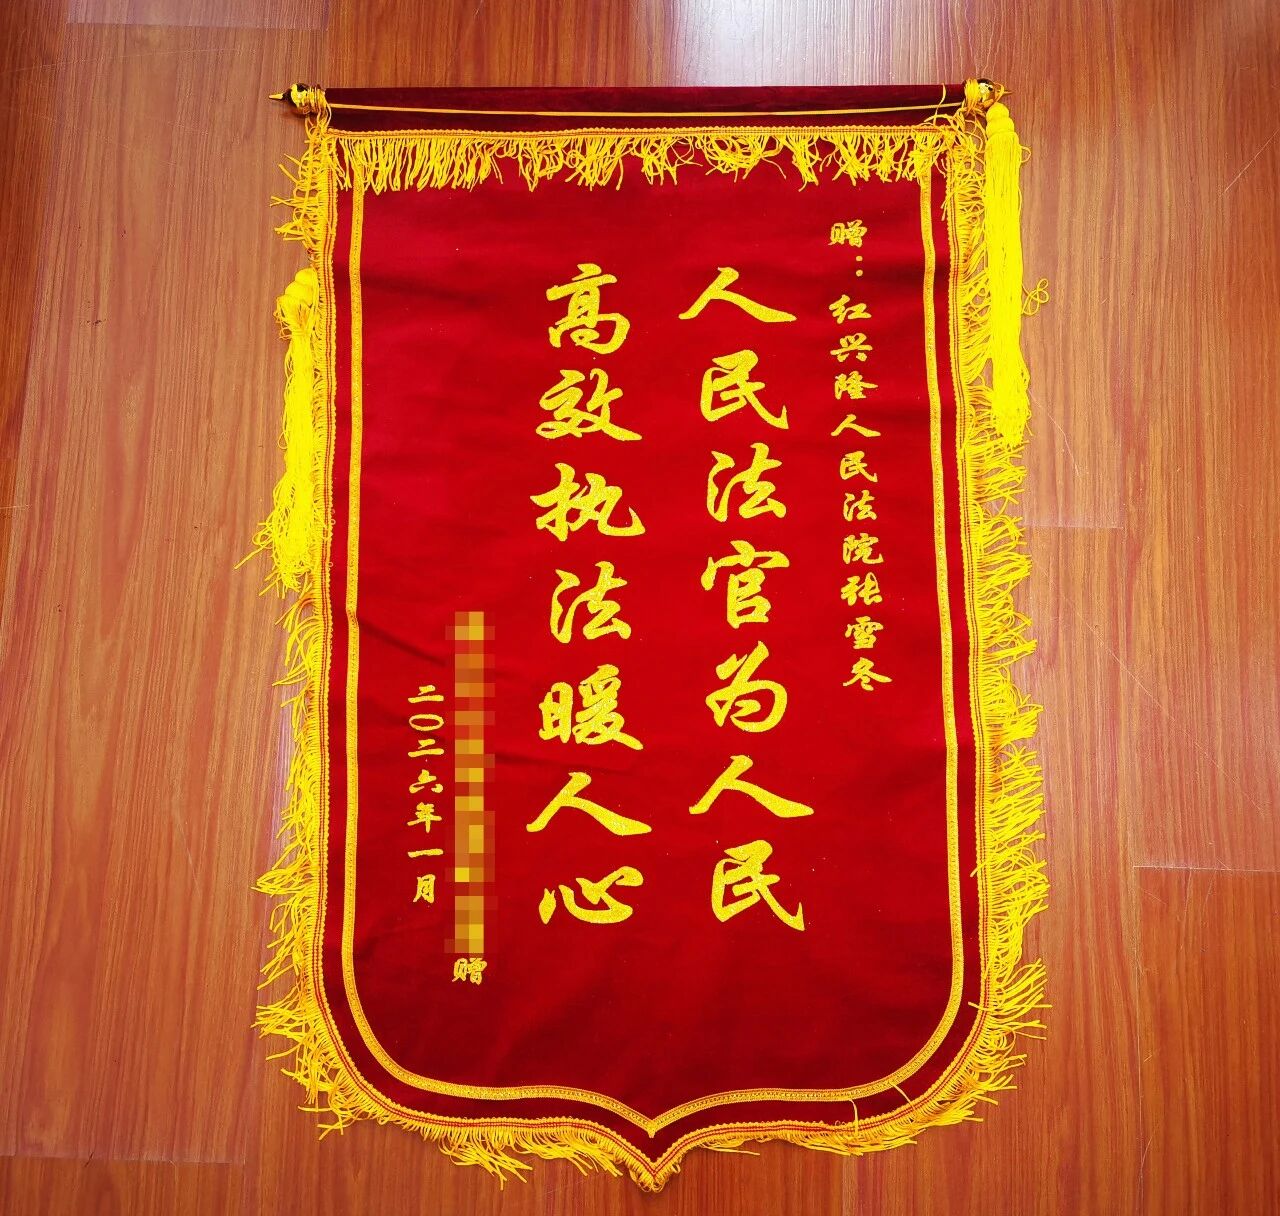 赠：红兴隆人民法院张雪冬
人民法官为人民
高效执法暖人心
赠
二〇二六年一月